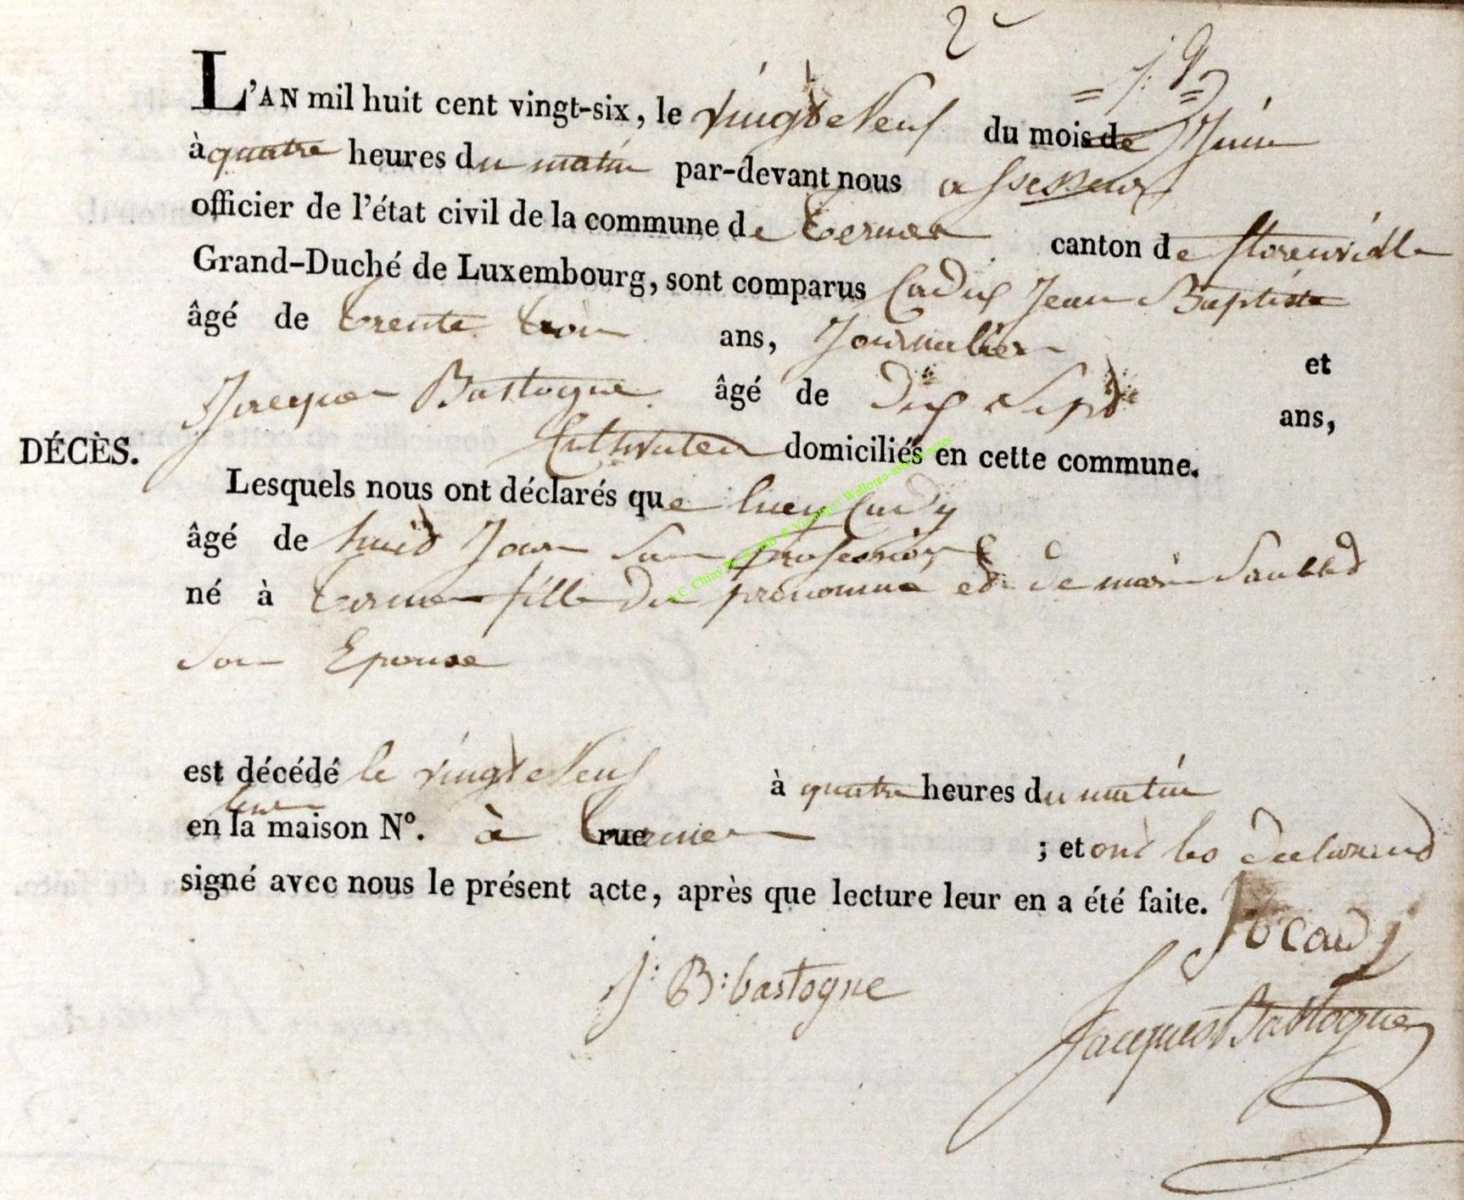 2
L'AN mil huit cent vingt-six, le vingt e Neuf du mois de Juin
à quatre heures du matin par-devant nous assesseur
officier de l'état civil de la commune de termes canton de florenville
Grand-Duché de Luxembourg, sont comparus Cady Jean Baptiste
âgé de trente trois ans, Journalier et
Jacques Bastogne âgé de Dix Sept ans,
DÉCÈS. Cultivateur domiciliés en cette commune.
Lesquels nous ont déclarés que lucy Cady
âgé de huit Jour San profession
né à termes fille du prenomme et de marie Saublet
Son Epouse
est décédé le vingt e Neuf à quatre heures du matin
en la maison Nº. à rue termes ; et ont les declarant
signé avec nous le présent acte, après que lecture leur en a été faite.
J b cady
J: B: bastogne
Jacques Bastogne